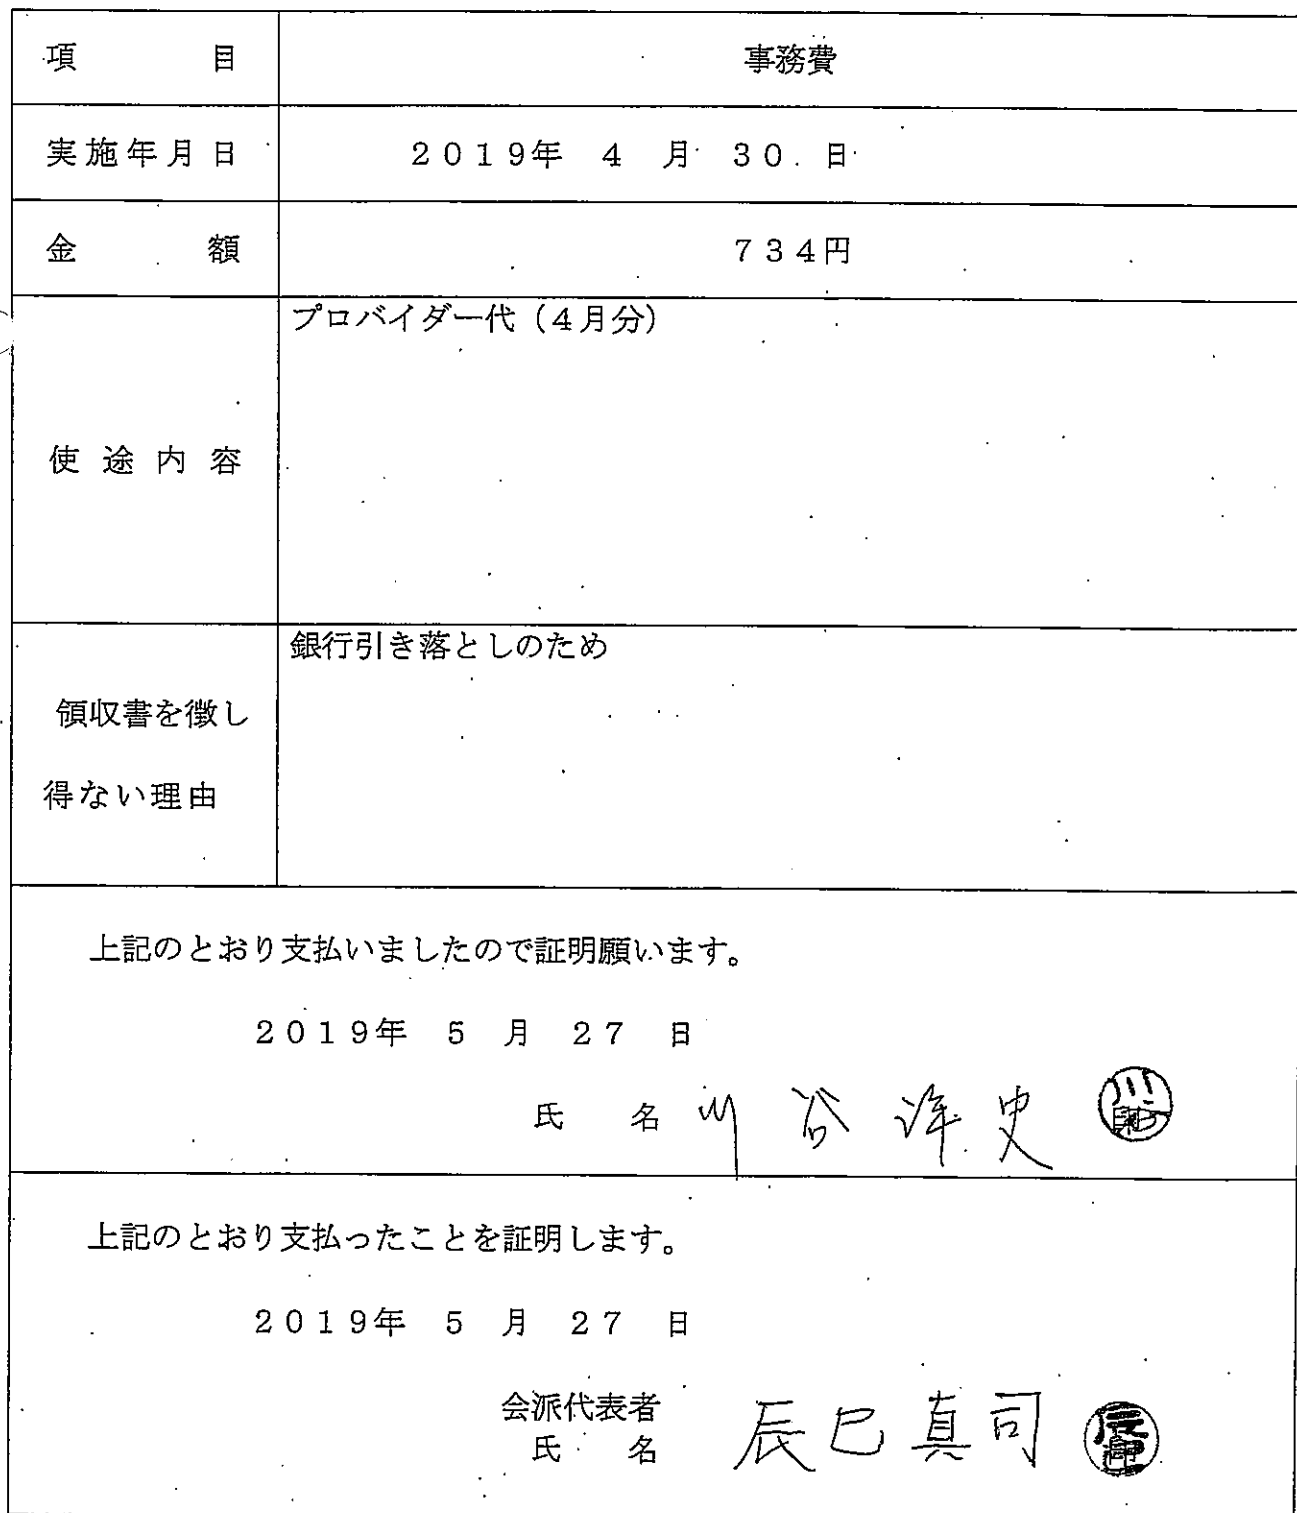 項 目 事務費
実施年月日 2019年 4 月 30 日
金 額 734円
使途内容 プロバイダー代（4月分）
領収書を徴し
得ない理由 銀行引き落としのため
上記のとおり支払いましたので証明願います。
2019年 5 月 27 日
氏 名 川谷洋史
上記のとおり支払ったことを証明します。
2019年 5 月 27 日
会派代表者
氏 名 辰巳真司